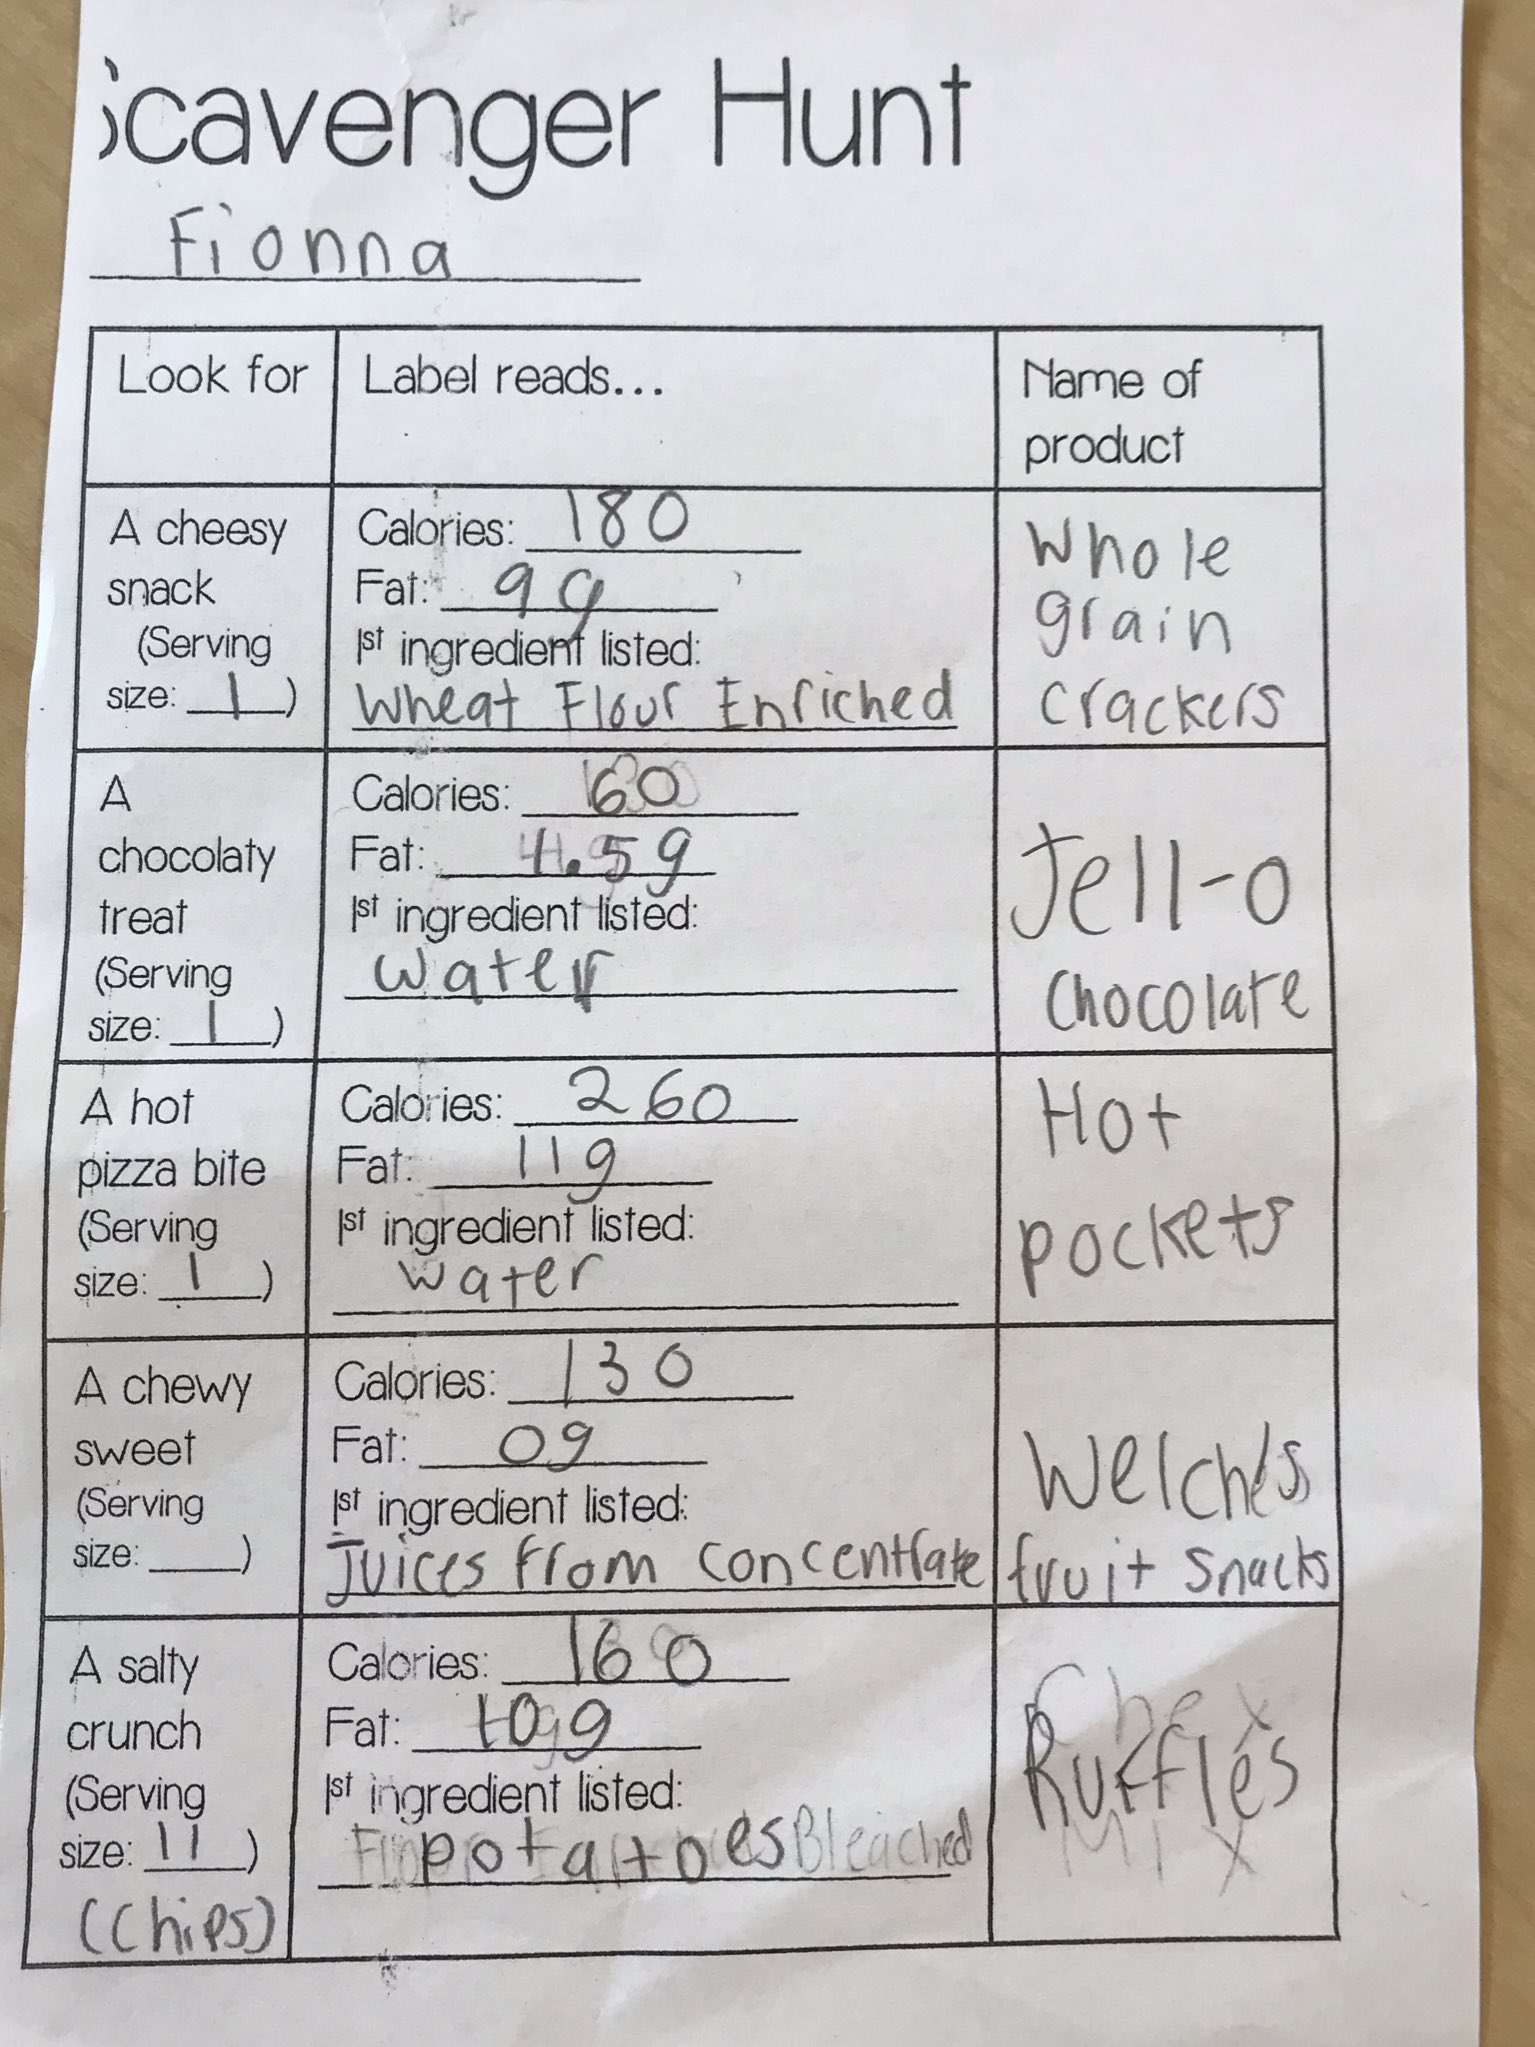 Scavenger Hunt
Fionna
Look for
Label reads...
Name of
product
A cheesy
snack
(Serving
size: 1)
Calories: 180
Fat: 9g
1st ingredient listed:
Wheat Flour Enriched
Whole
grain
crackers
A
chocolaty
treat
(Serving
size: 1)
Calories: 60
Fat: 1.5g
1st ingredient listed:
water
Jell-o
chocolate
A hot
pizza bite
(Serving
size: 1)
Calories: 260
Fat: 11g
1st ingredient listed:
water
Hot
pockets
A chewy
sweet
(Serving
size: ____)
Calories: 130
Fat: 0g
1st ingredient listed:
Juices from concentrate
Welch's
fruit snacks
A salty
crunch
(Serving
size: 11)
(Chips)
Calories: 160
Fat: 10g
1st ingredient listed:
potatoes Bleached
Chex
Ruffles
Mix